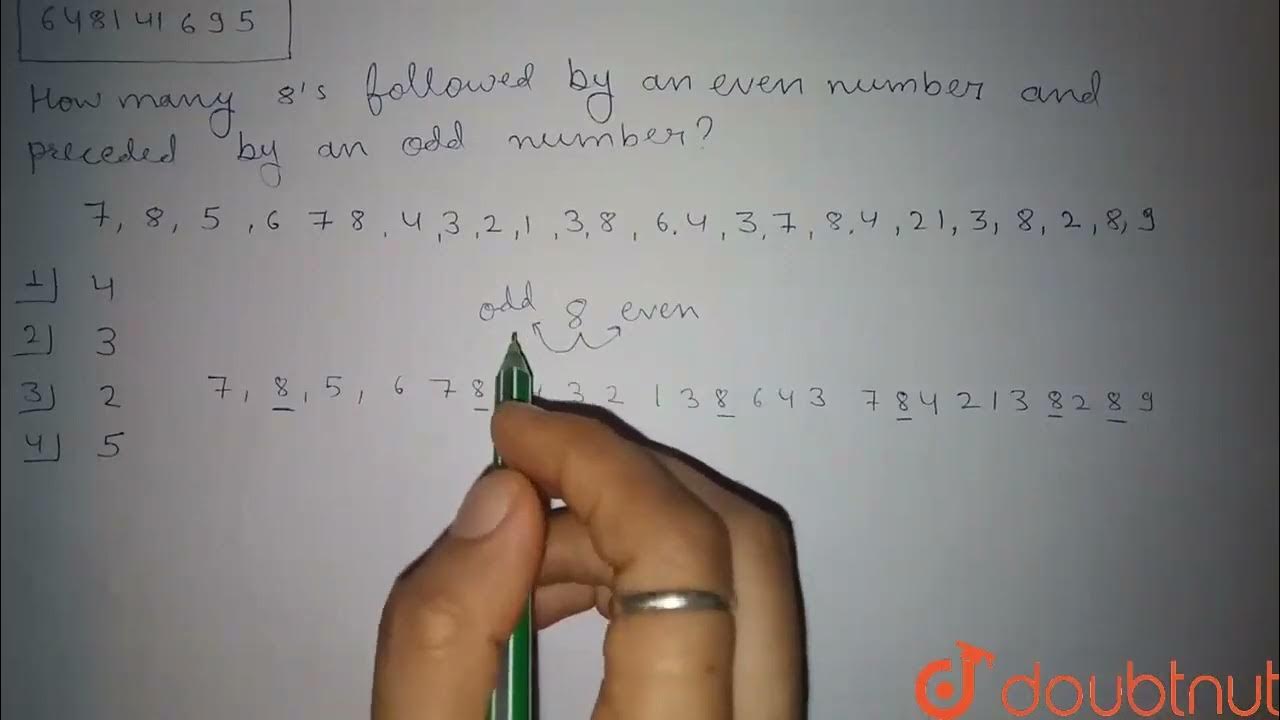 648141695
How many 8's followed by an even number and
preceded by an odd number?
7, 8, 5, 6 7 8, 4, 3, 2, 1, 3, 8, 6, 4, 3, 7, 8, 4, 21, 3, 8, 2, 8, 9
1) 4
2) 3
3) 2
4) 5
odd 8 even
7, 8, 5, 6 7 8 3 2 1 3 8 6 4 3 7 8 4 2 1 3 8 2 8 9
doubtnut